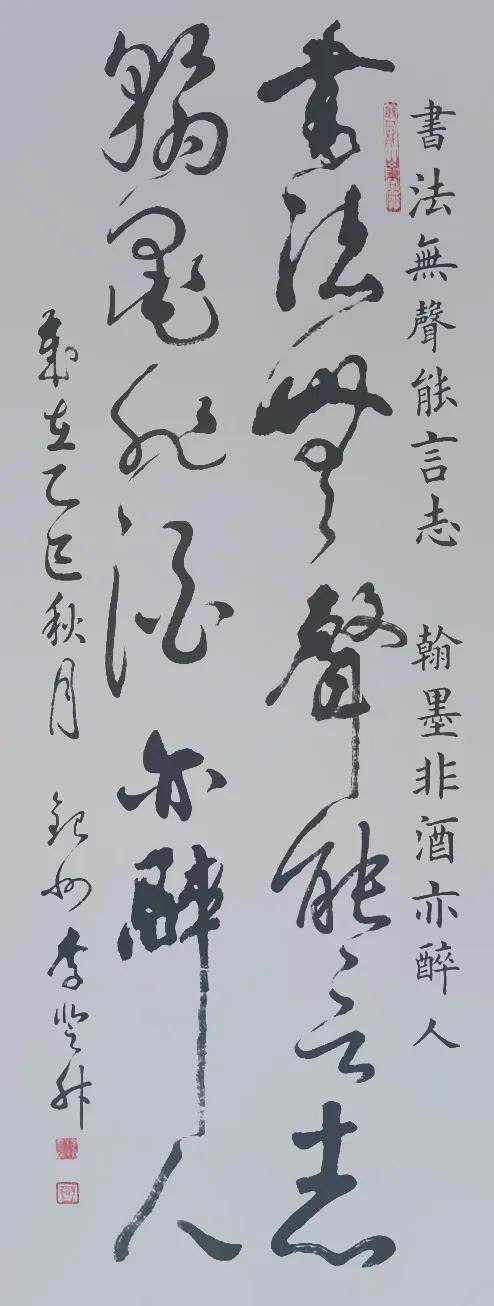 書法無聲能言志 翰墨非酒亦醉人
書法無聲能言志
翰墨非酒亦醉人
歲在乙巳秋月 州李